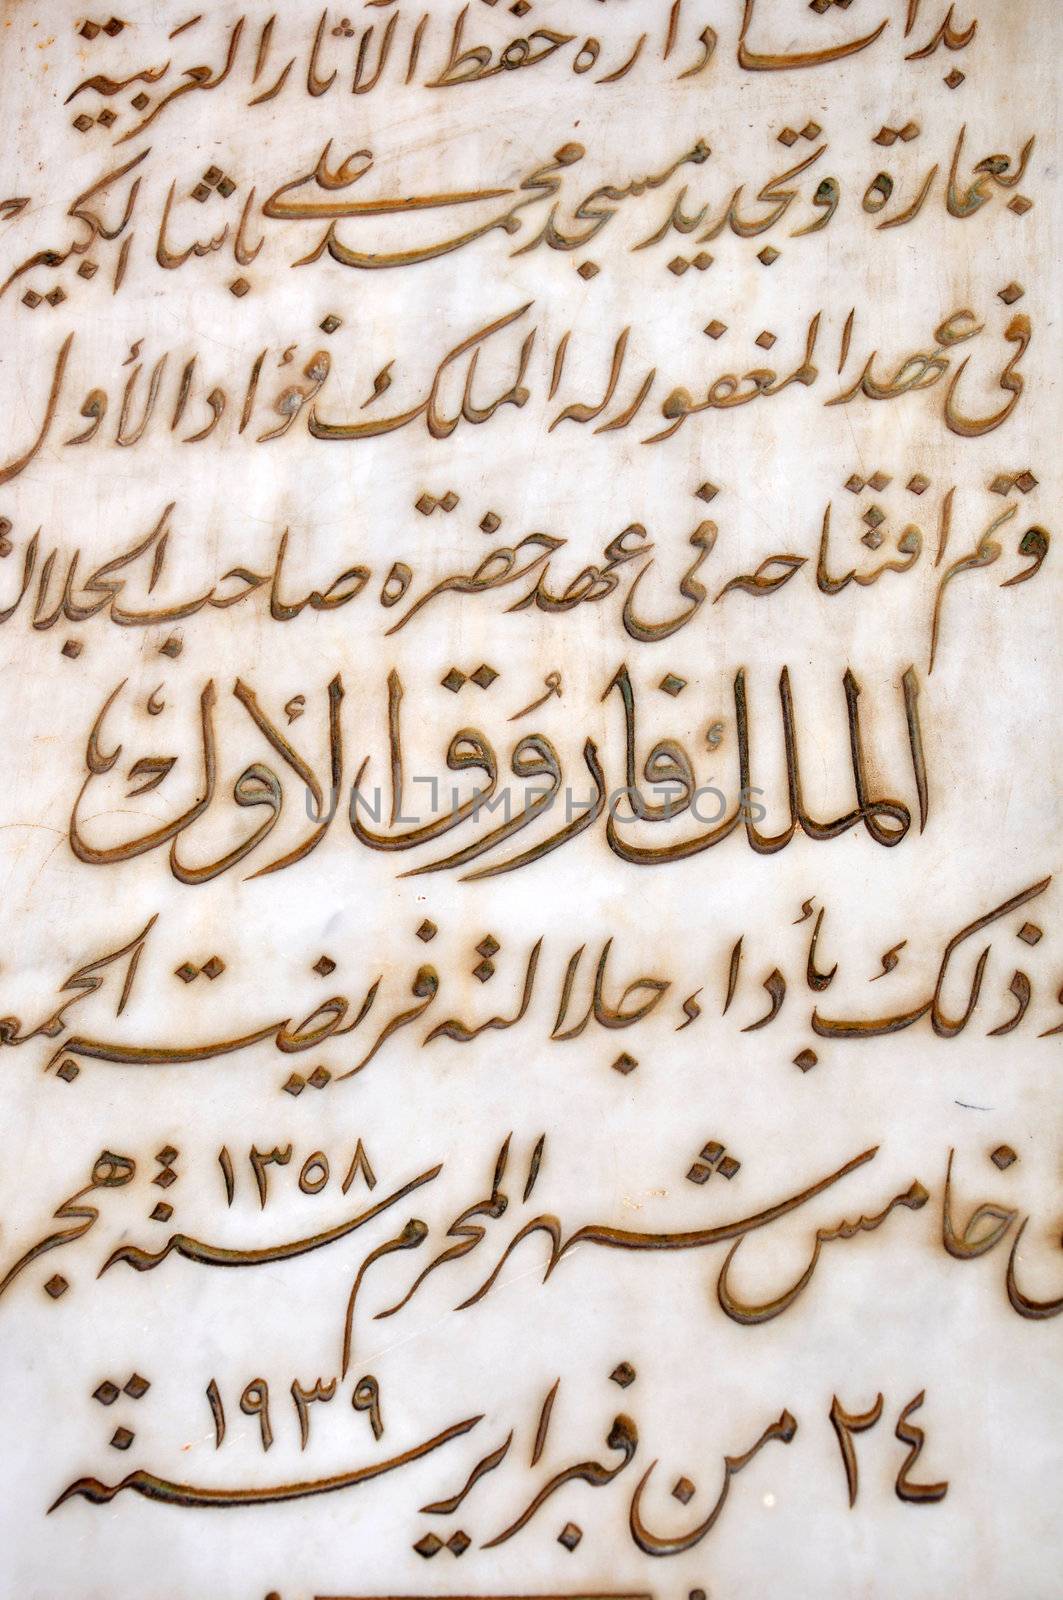 بدأت ادارة حفظ الآثار العربية
بعمارة وتجديد مسجد محمد على باشا الكبير
فى عهد المغفور له الملك فؤاد الأول
وتم افتتاحه فى عهد حضرة صاحب الجلالة
الملك فاروق الأول
وذلك بأداء جلالته فريضة الجمعة
خامس شهر المحرم سنة ١٣٥٨ هجر
٢٤ من فبراير سنة ١٩٣٩
UNLIMPHOTOS